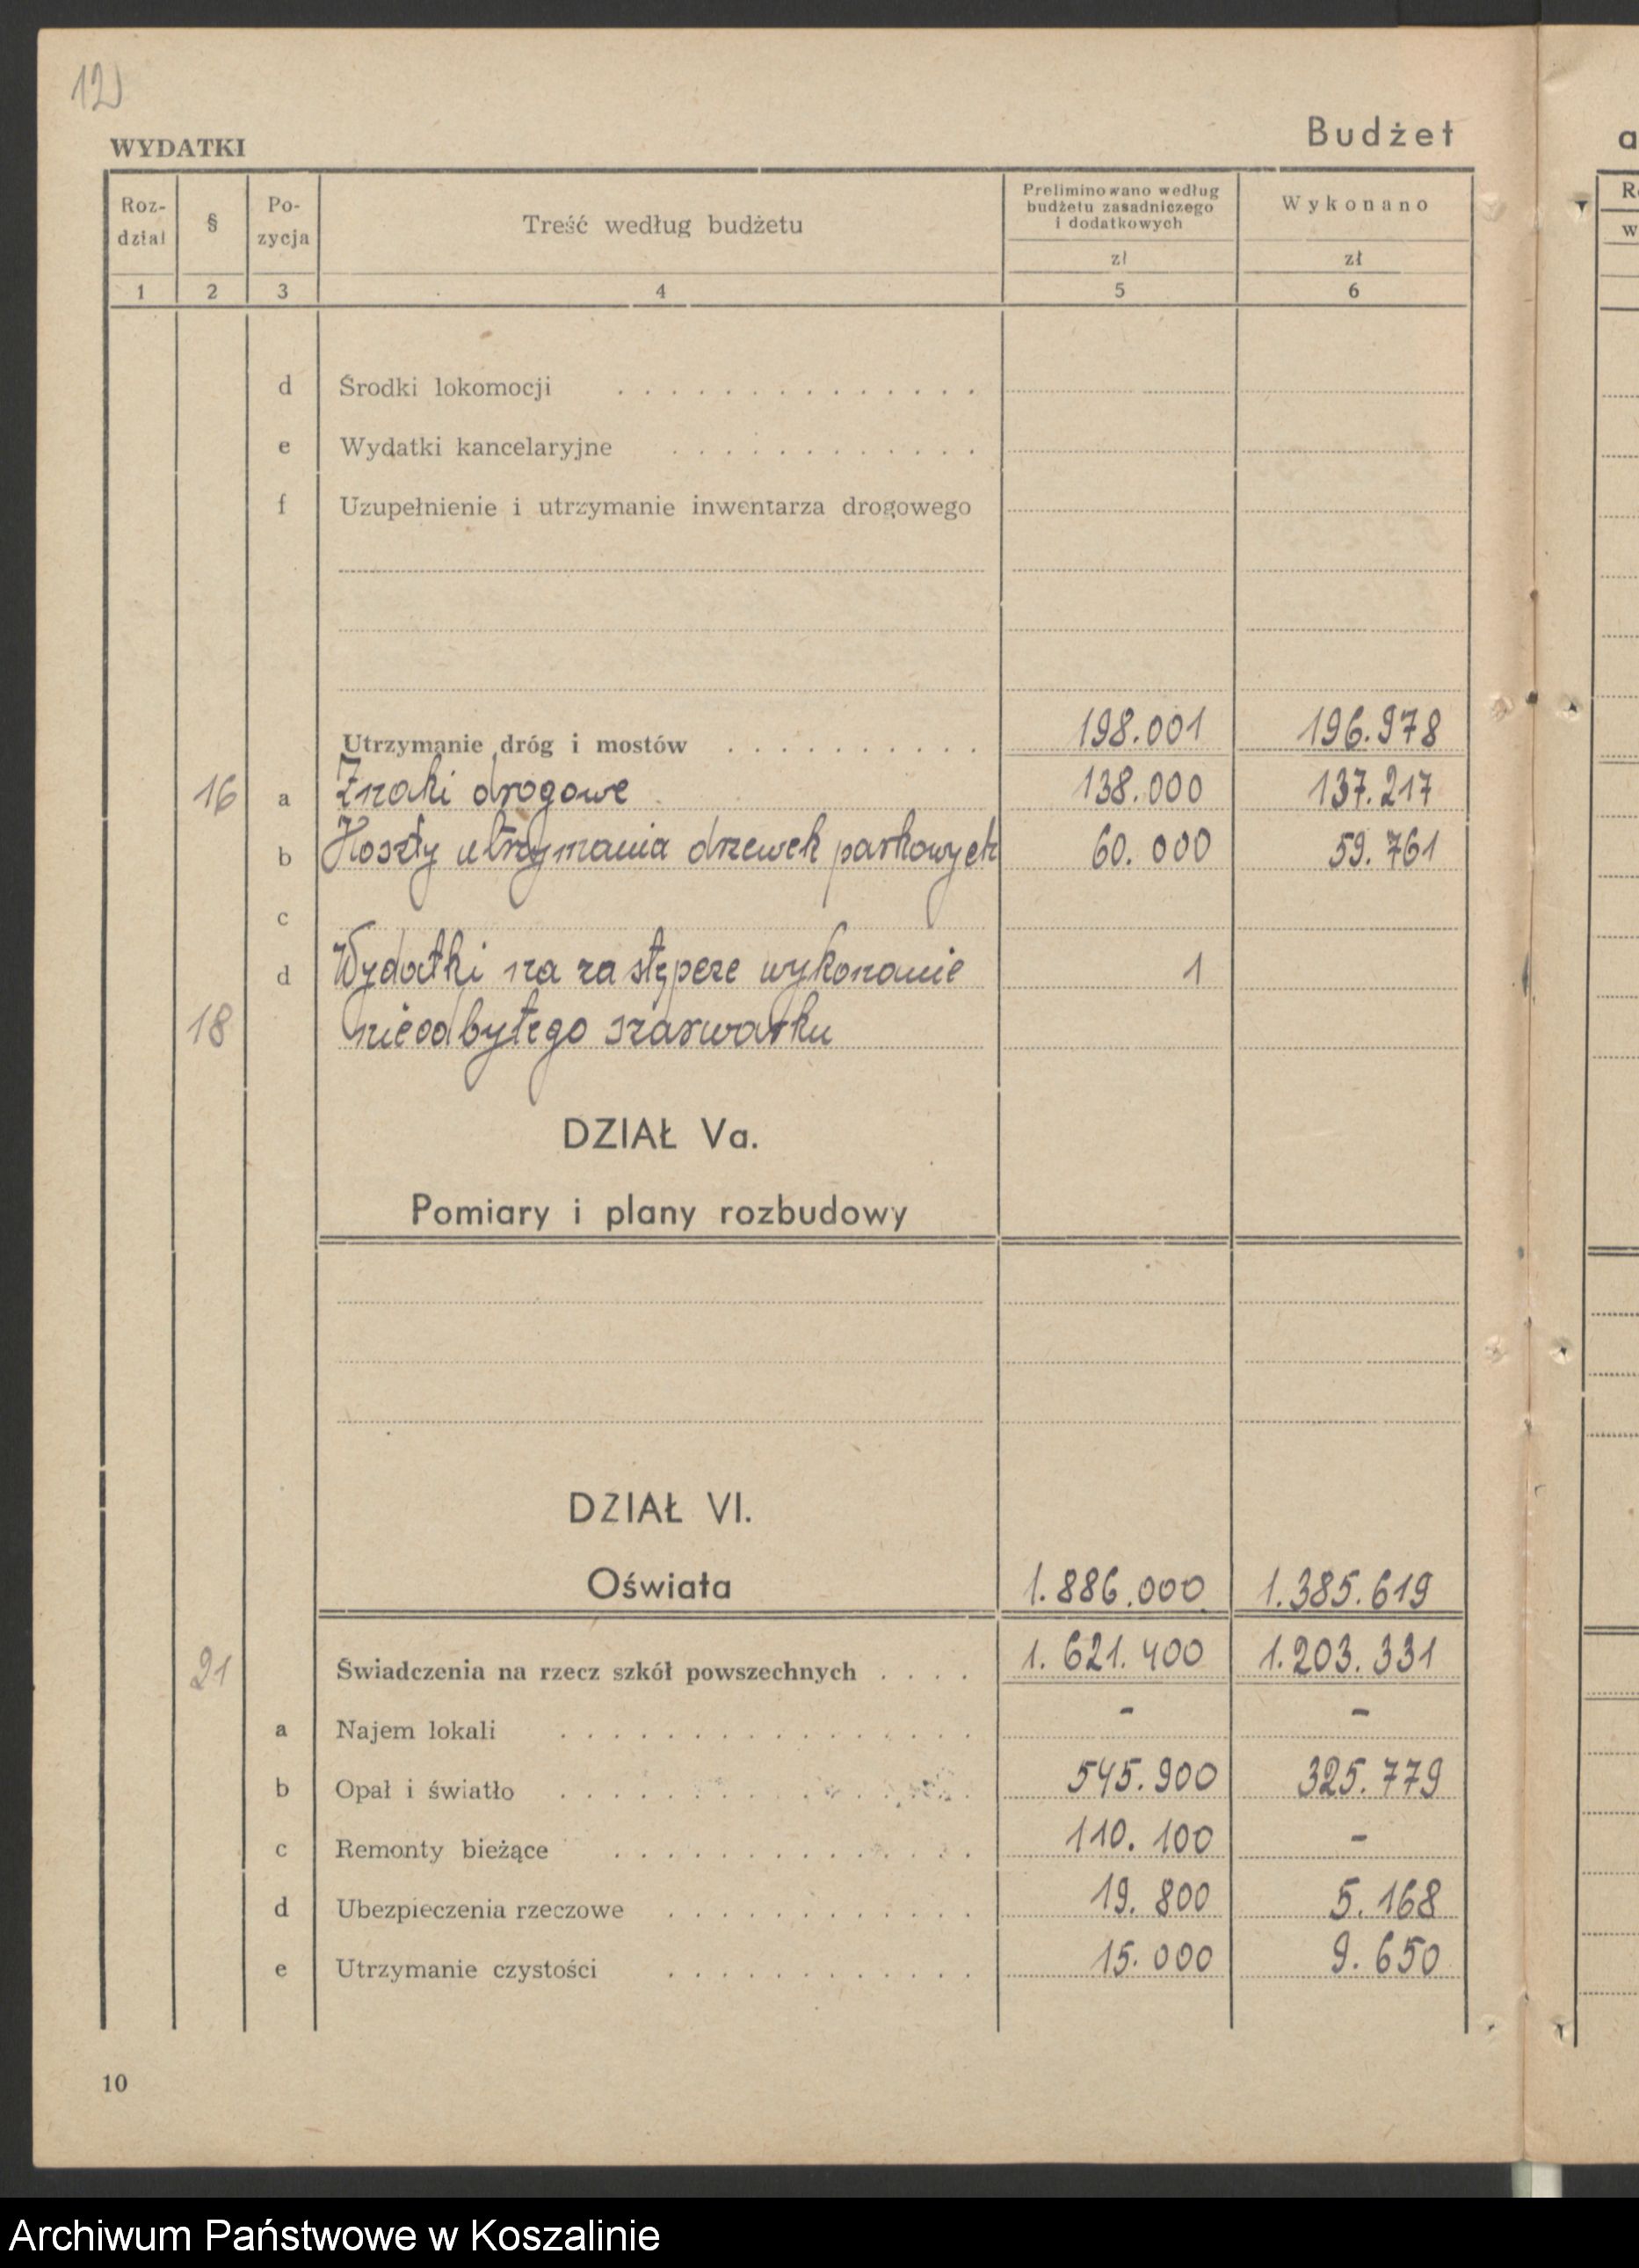 12
WYDATKI
Budżet
a
Roz-
dział
§
Po-
zycja
Treść według budżetu
Preliminowano według
budżetu zasadniczego
i dodatkowych
zł
Wykonano
zł
1 2 3 4 5 6
d Środki lokomocji
e Wydatki kancelaryjne
f Uzupełnienie i utrzymanie inwentarza drogowego
Utrzymanie dróg i mostów 198.001 196.978
16 a Znaki drogowe 138.000 137.217
b Koszty utrzymania drzewek parkowych 60.000 59.761
c
d Wydatki na zastępcze wykonanie 1
18 nieodbytego szarwarku
DZIAŁ Va.
Pomiary i plany rozbudowy
DZIAŁ VI.
Oświata 1.886.000 1.385.619
21 Świadczenia na rzecz szkół powszechnych 1.621.400 1.203.331
a Najem lokali - -
b Opał i światło 545.900 325.779
c Remonty bieżące 110.100 -
d Ubezpieczenia rzeczowe 19.800 5.168
e Utrzymanie czystości 15.000 9.650
10
Archiwum Państwowe w Koszalinie